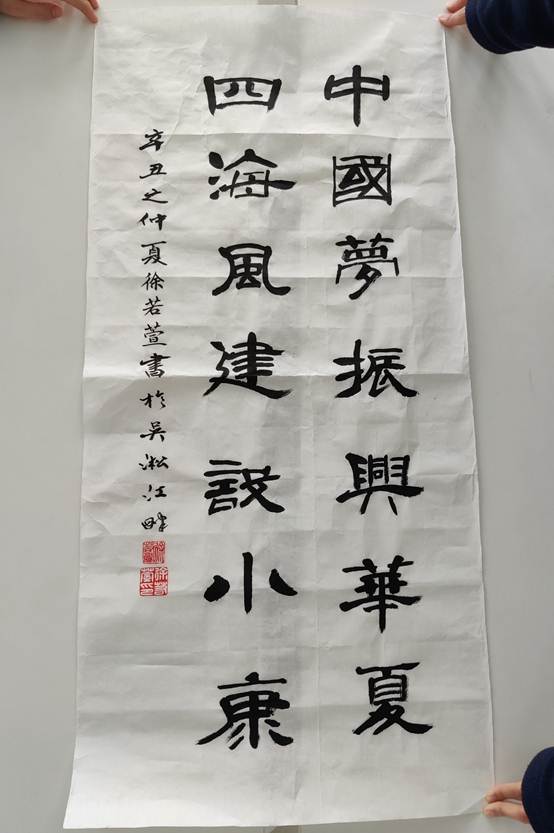 中國夢振興華夏
四海風建設小康
辛丑之仲夏徐若萱書於吳淞江畔